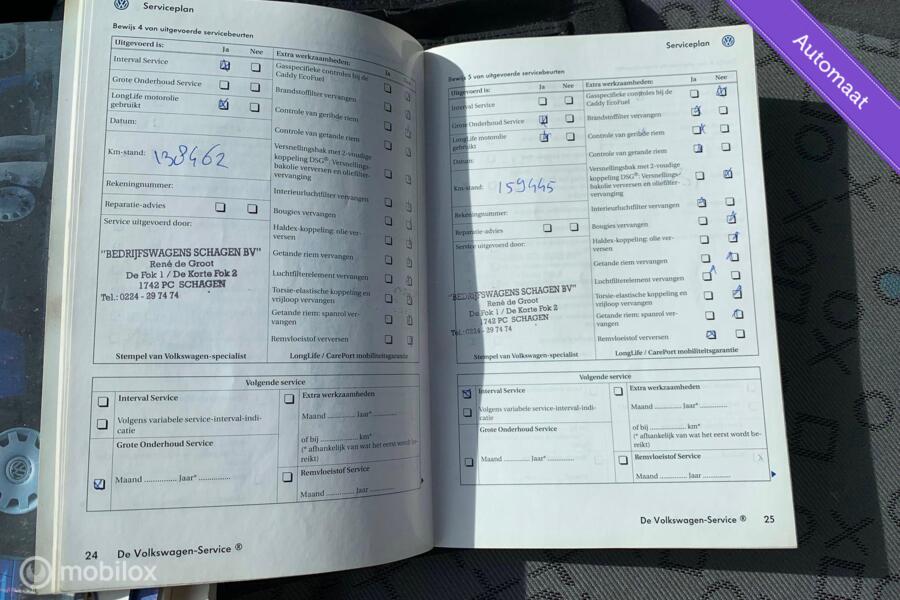 Serviceplan
Bewijs 4 van uitgevoerde servicebeurten
Uitgevoerd is:
Ja
Nee
Interval Service
Grote Onderhoud Service
LongLife motorolie
gebruikt
Datum:
Km-stand: 138462
Rekeningnummer:
Reparatie-advies
Service uitgevoerd door:
"BEDRIJFSWAGENS SCHAGEN BV"
René de Groot
De Fok 1 / De Korte Fok 2
1742 PC SCHAGEN
Tel.: 0224 - 29 74 74
Stempel van Volkswagen-specialist
Extra werkzaamheden:
Ja
Nee
Gasspecifieke controles bij de
Caddy EcoFuel
Brandstoffilter vervangen
Controle van geribde riem
Controle van getande riem
Versnellingsbak met 2-voudige
koppeling DSG®: Versnellings-
bakolie verversen en oliefilter-
vervanging
Interieurluchtfilter vervangen
Bougies vervangen
Haldex-koppeling: olie ver-
versen
Getande riem vervangen
Luchtfilterelement vervangen
Torsie-elastische koppeling en
vrijloop vervangen
Getande riem: spanrol ver-
vangen
Remvloeistof verversen
LongLife / CarePort mobiliteitsgarantie
Volgende service
Interval Service
Volgens variabele service-interval-indi-
catie
Grote Onderhoud Service
Maand ............... Jaar* ...............
Extra werkzaamheden
Maand ............... Jaar* ...............
of bij ............... km*
(* afhankelijk van wat het eerst wordt be-
reikt)
Remvloeistof Service
Maand ............... Jaar ...............
24 De Volkswagen-Service ®
Serviceplan
Bewijs 5 van uitgevoerde servicebeurten
Uitgevoerd is:
Ja
Nee
Interval Service
Grote Onderhoud Service
LongLife motorolie
gebruikt
Datum:
Km-stand: 159445
Rekeningnummer:
Reparatie-advies
Service uitgevoerd door:
"BEDRIJFSWAGENS SCHAGEN BV"
René de Groot
De Fok 1 / De Korte Fok 2
1742 PC SCHAGEN
Tel.: 0224 - 29 74 74
Stempel van Volkswagen-specialist
Extra werkzaamheden:
Ja
Nee
Gasspecifieke controles bij de
Caddy EcoFuel
Brandstoffilter vervangen
Controle van geribde riem
Controle van getande riem
Versnellingsbak met 2-voudige
koppeling DSG®: Versnellings-
bakolie verversen en oliefilter-
vervanging
Interieurluchtfilter vervangen
Bougies vervangen
Haldex-koppeling: olie ver-
versen
Getande riem vervangen
Luchtfilterelement vervangen
Torsie-elastische koppeling en
vrijloop vervangen
Getande riem: spanrol ver-
vangen
Remvloeistof verversen
LongLife / CarePort mobiliteitsgarantie
Volgende service
Interval Service
Volgens variabele service-interval-indi-
catie
Grote Onderhoud Service
Maand ............... Jaar* ...............
Extra werkzaamheden
Maand ............... Jaar* ...............
of bij ............... km*
(* afhankelijk van wat het eerst wordt be-
reikt)
Remvloeistof Service
Maand ............... Jaar ...............
De Volkswagen-Service ® 25
Automaat
mobilox